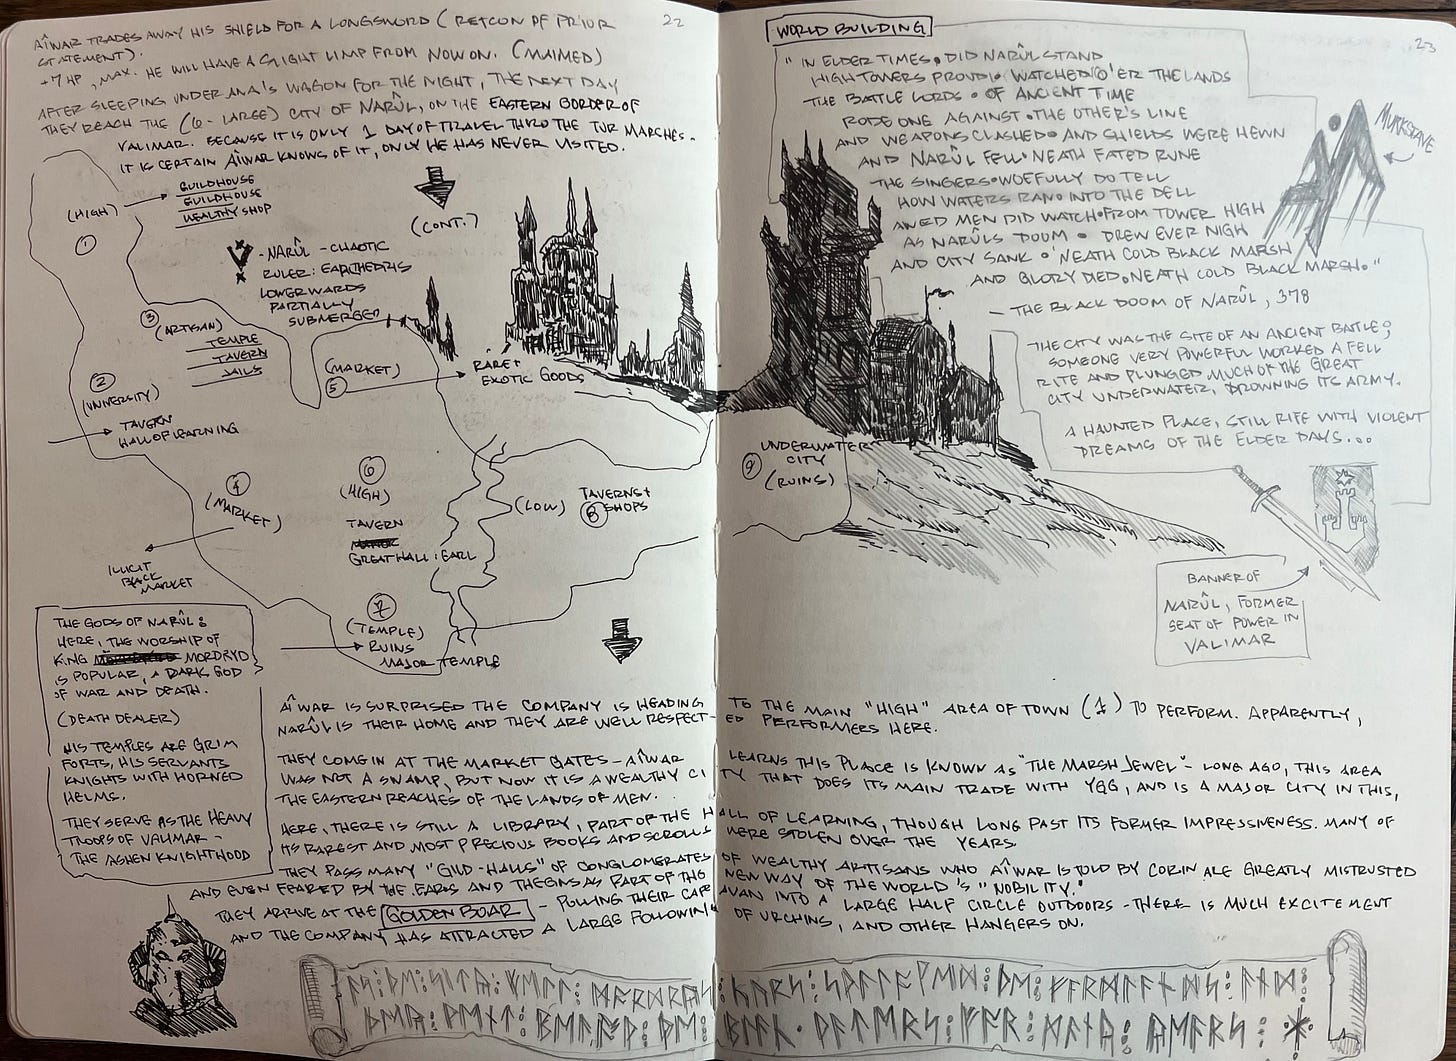 22
AÎWAR TRADES AWAY HIS SHIELD FOR A LONGSWORD (RETCON OF PRIOR
STATEMENT).
+7 HP, MAX. HE WILL HAVE A SLIGHT LIMP FROM NOW ON. (MAIMED)
AFTER SLEEPING UNDER ANA'S WAGON FOR THE NIGHT, THE NEXT DAY
THEY REACH THE (6 - LARGE) CITY OF NARÛL, ON THE EASTERN BORDER OF
VALIMAR. BECAUSE IT IS ONLY 1 DAY OF TRAVEL THRO THE TUR MARCHES -
IT IS CERTAIN AÎWAR KNOWS OF IT, ONLY HE HAS NEVER VISITED.
(CONT.)
(HIGH)
1
GUILDHOUSE
GUILDHOUSE
WEALTHY SHOP
- NARÛL - CHAOTIC
RULER: EARL
LOWER WARDS
PARTIALLY
SUBMERGED
3
(ARTISAN)
TEMPLE
TAVERN
JAILS
2
(UNIVERSITY)
TAVERN
HALL OF LEARNING
(MARKET)
5
RARE +
EXOTIC GOODS
4
(MARKET)
ILLICIT
BLACK
MARKET
6
(HIGH)
TAVERN
GREAT HALL: EARL
(LOW)
8
TAVERNS +
SHOPS
7
(TEMPLE)
RUINS
MAJOR TEMPLE
THE GODS OF NARÛL:
HERE, THE WORSHIP OF
KING MORDRYD
IS POPULAR, A DARK GOD
OF WAR AND DEATH.
(DEATH DEALER)
HIS TEMPLES ARE GRIM
FORTS, HIS SERVANTS
KNIGHTS WITH HORNED
HELMS.
THEY SERVE AS THE HEAVY
TROOPS OF VALIMAR -
THE ASHEN KNIGHTHOOD
23
WORLD BUILDING
"IN ELDER TIMES, DID NARÛL STAND
HIGH TOWERS PROUD WATCHED O'ER THE LANDS
THE BATTLE LORDS OF ANCIENT TIME
RODE ONE AGAINST THE OTHER'S LINE
AND WEAPONS CLASHED AND SHIELDS WERE HEWN
AND NARÛL FELL 'NEATH FATED RUNE
THE SINGERS WOEFULLY DO TELL
HOW WATERS RAN INTO THE DELL
AWED MEN DID WATCH FROM TOWER HIGH
AS NARÛLS DOOM DREW EVER NIGH
AND CITY SANK 'NEATH COLD BLACK MARSH
AND GLORY DIED 'NEATH COLD BLACK MARSH."
— THE BLACK DOOM OF NARÛL, 378
MURKSTAVE
THE CITY WAS THE SITE OF AN ANCIENT BATTLE;
SOMEONE VERY POWERFUL WORKED A FELL
RITE AND PLUNGED MUCH OF THE GREAT
CITY UNDERWATER, DROWNING ITS ARMY.
A HAUNTED PLACE, STILL RIFE WITH VIOLENT
DREAMS OF THE ELDER DAYS...
9
UNDERWATER
CITY
(RUINS)
BANNER OF
NARÛL, FORMER
SEAT OF POWER IN
VALIMAR
AÎWAR IS SURPRISED THE COMPANY IS HEADING TO THE MAIN "HIGH" AREA OF TOWN (1) TO PERFORM. APPARENTLY,
NARÛL IS THEIR HOME AND THEY ARE WELL RESPECTED PERFORMERS HERE.
THEY COME IN AT THE MARKET GATES - AÎWAR LEARNS THIS PLACE IS KNOWN AS "THE MARSH JEWEL" - LONG AGO, THIS AREA
WAS NOT A SWAMP, BUT NOW IT IS A WEALTHY CITY THAT DOES ITS MAIN TRADE WITH YGG, AND IS A MAJOR CITY IN THIS,
THE EASTERN REACHES OF THE LANDS OF MEN.
HERE, THERE IS STILL A LIBRARY, PART OF THE HALL OF LEARNING, THOUGH LONG PAST ITS FORMER IMPRESSIVENESS. MANY OF
ITS RAREST AND MOST PRECIOUS BOOKS AND SCROLLS WERE STOLEN OVER THE YEARS.
THEY PASS MANY "GILD-HALLS" OF CONGLOMERATES OF WEALTHY ARTISANS WHO AÎWAR IS TOLD BY CORIN ARE GREATLY MISTRUSTED
AND EVEN FEARED BY THE EARLS AND THEGNS AS PART OF THE NEW WAY OF THE WORLD'S "NOBILITY."
THEY ARRIVE AT THE GOLDEN BOAR - PULLING THEIR CARAVAN INTO A LARGE HALF CIRCLE OUTDOORS - THERE IS MUCH EXCITEMENT
AND THE COMPANY HAS ATTRACTED A LARGE FOLLOWING OF URCHINS, AND OTHER HANGERS ON.